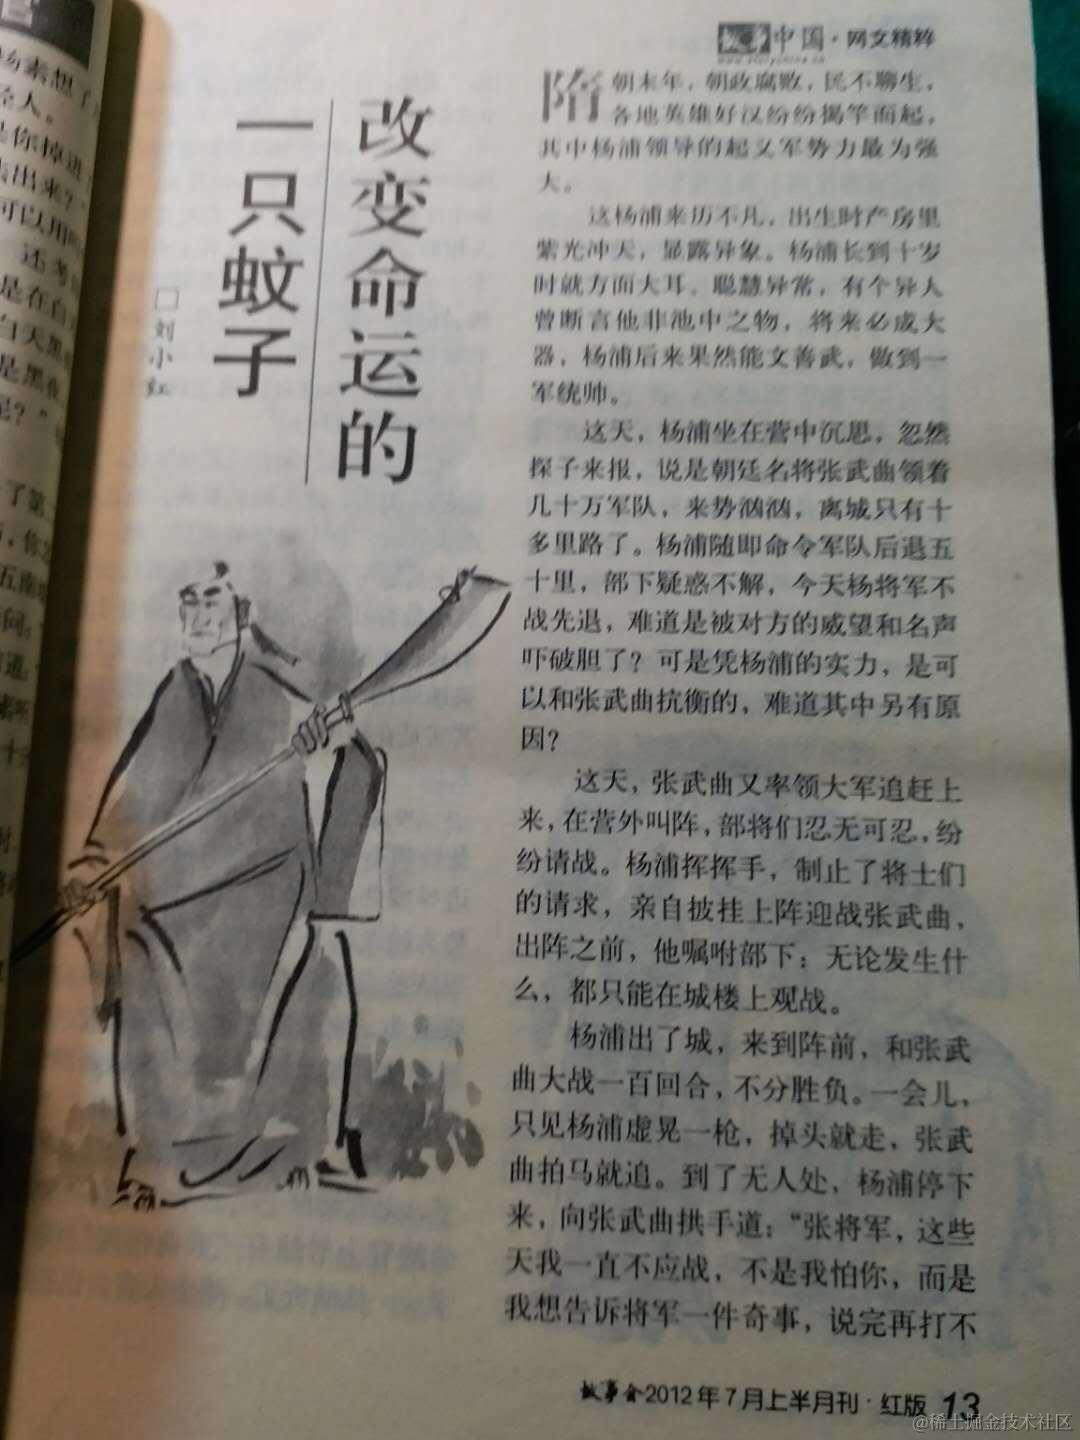 中国·网文精粹
改变命运的
一只蚊子
□刘小红
隋朝末年，朝政腐败，民不聊生，
各地英雄好汉纷纷揭竿而起，
其中杨浦领导的起义军势力最为强
大。
这杨浦来历不凡，出生时产房里
紫光冲天，显露异象。杨浦长到十岁
时就方面大耳、聪慧异常，有个异人
曾断言他非池中之物，将来必成大
器，杨浦后来果然能文善武，做到一
军统帅。
这天，杨浦坐在营中沉思，忽然
探子来报，说是朝廷名将张武曲领着
几十万军队，来势汹汹，离城只有十
多里路了。杨浦随即命令军队后退五
十里，部下疑惑不解，今天杨将军不
战先退，难道是被对方的威望和名声
吓破胆了？可是凭杨浦的实力，是可
以和张武曲抗衡的，难道其中另有原
因？
这天，张武曲又率领大军追赶上
来，在营外叫阵，部将们忍无可忍，纷
纷请战。杨浦挥挥手，制止了将士们
的请求，亲自披挂上阵迎战张武曲，
出阵之前，他嘱咐部下：无论发生什
么，都只能在城楼上观战。
杨浦出了城，来到阵前，和张武
曲大战一百回合，不分胜负。一会儿，
只见杨浦虚晃一枪，掉头就走，张武
曲拍马就追。到了无人处，杨浦停下
来，向张武曲拱手道：“张将军，这些
天我一直不应战，不是我怕你，而是
我想告诉将军一件奇事，说完再打不
故事会2012年7月上半月刊·红版 13
@稀土掘金技术社区